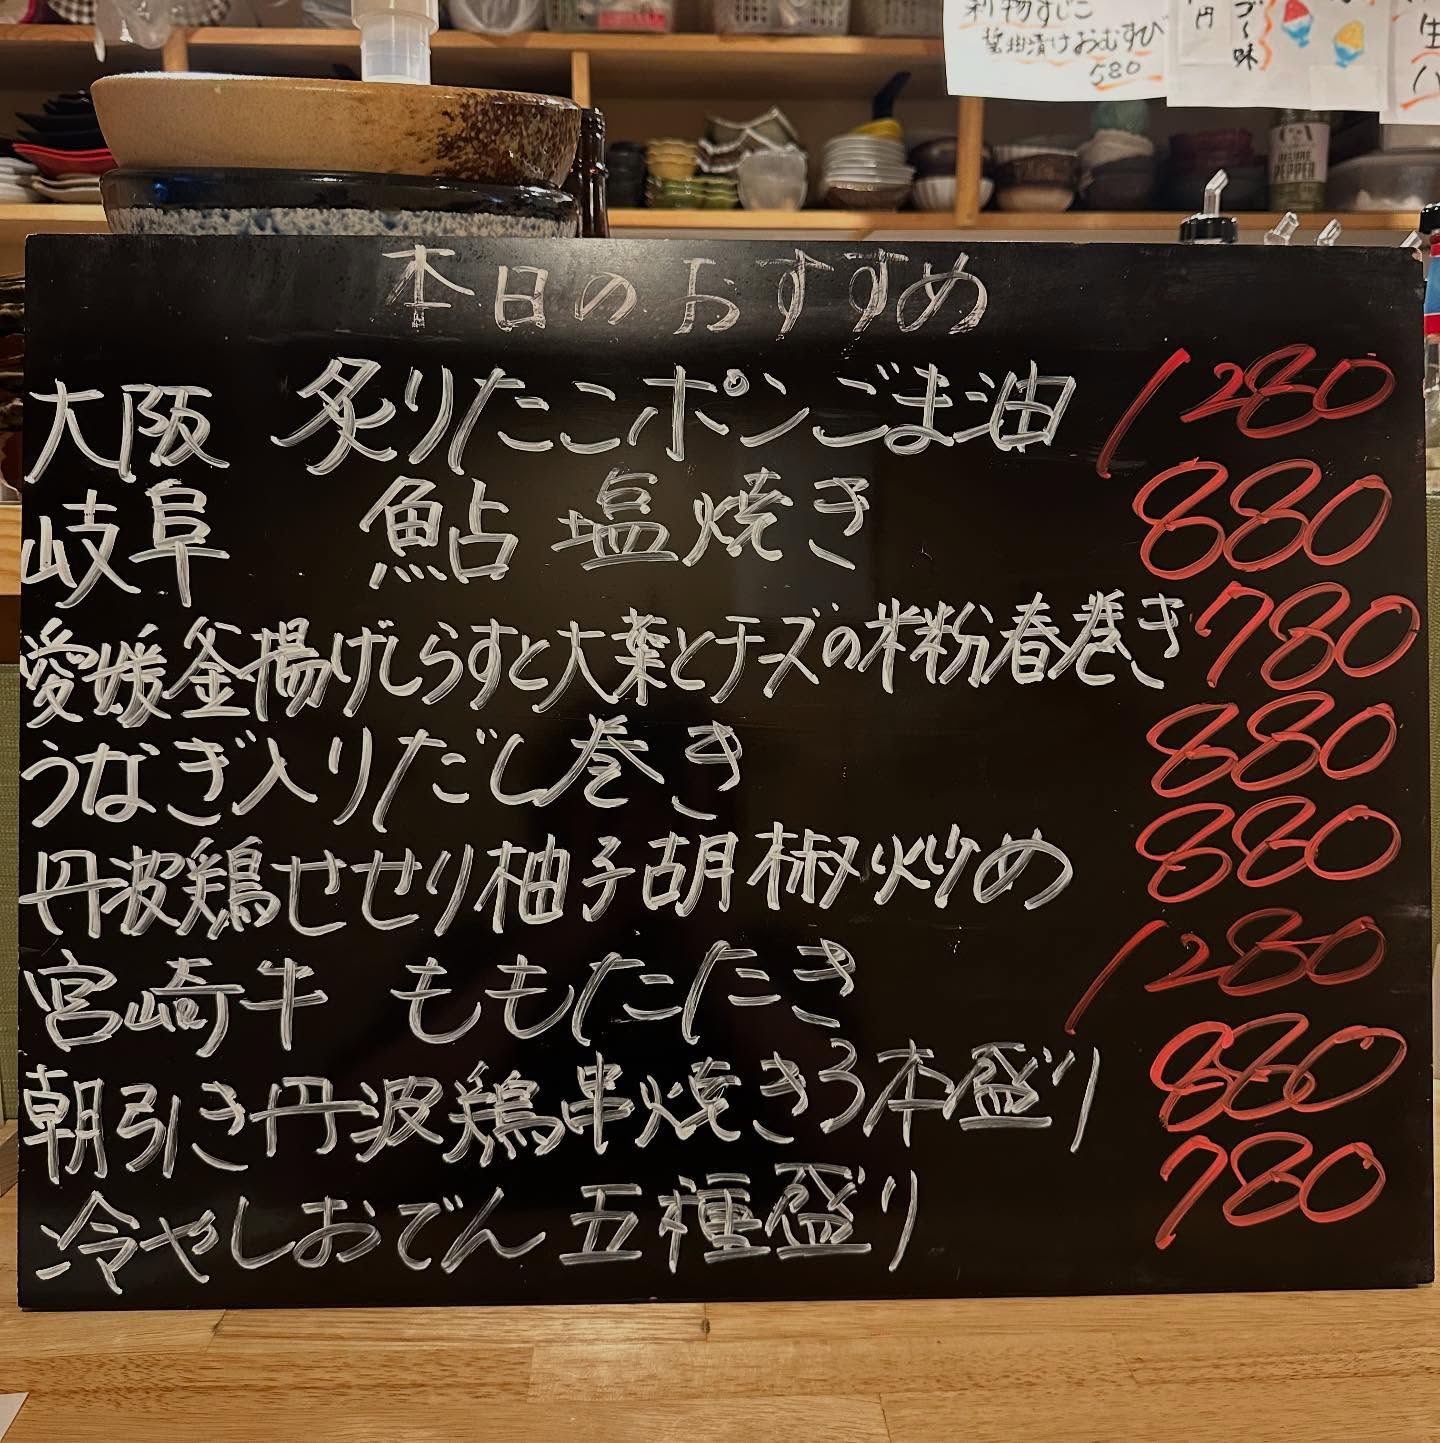 醤油漬けおむすび
580
円
づくし
味
生
PEPPER
本日のおすすめ
大阪 炙りたこポンごま油 1280
岐阜 鮎 塩焼き 880
愛媛釜揚げしらすと大葉とチーズの米粉春巻き 780
うなぎ入りだし巻き 880
丹波鶏せせり柚子胡椒炒め 880
宮崎牛 ももたたき 1280
朝引き丹波鶏串焼き3本盛り 880
冷やしおでん 五種盛り 780